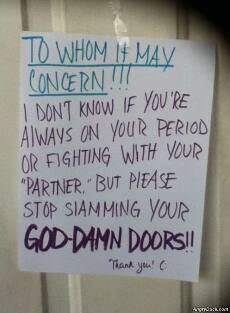 TO WHOM IT MAY
CONCERN!!!
I DON'T KNOW IF YOU'RE
AlWAYS ON YOUR PERIOD
OR FIGHTING WITH YOUR
"PARTNER," BUT PlEASE
STOP SlAMMING YOUR
GOD-DAMN DOORS!!
"Thank you! C:
AngryDuck.com